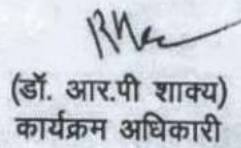 (डॉ. आर.पी शाक्य)
कार्यक्रम अधिकारी